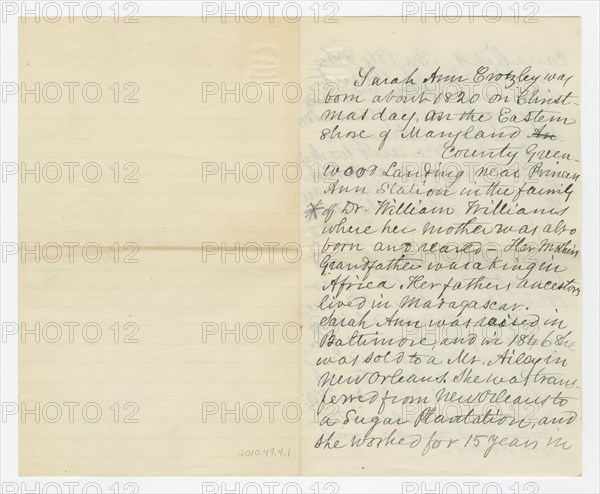 Sarah Ann Crozley was
born about 1820 on Christ-
mas day, on the Eastern
Shore of Maryland An
County Green-
wood Landing near Princess
Ann Station in the family
* of Dr. William Williams
where her mother was also
born and reared - Her Mothers
Grandfather was a King in
Africa. Her fathers ancestors
lived in Madagascar.
Sarah Ann was raised in
Baltimore, and in 1846 she
was sold to a Mr. in
New Orleans. She was trans-
ferred from New Orleans to
a Sugar Plantation, and
she worked for 15 years in
2010.49.4.1
PHOTO 12